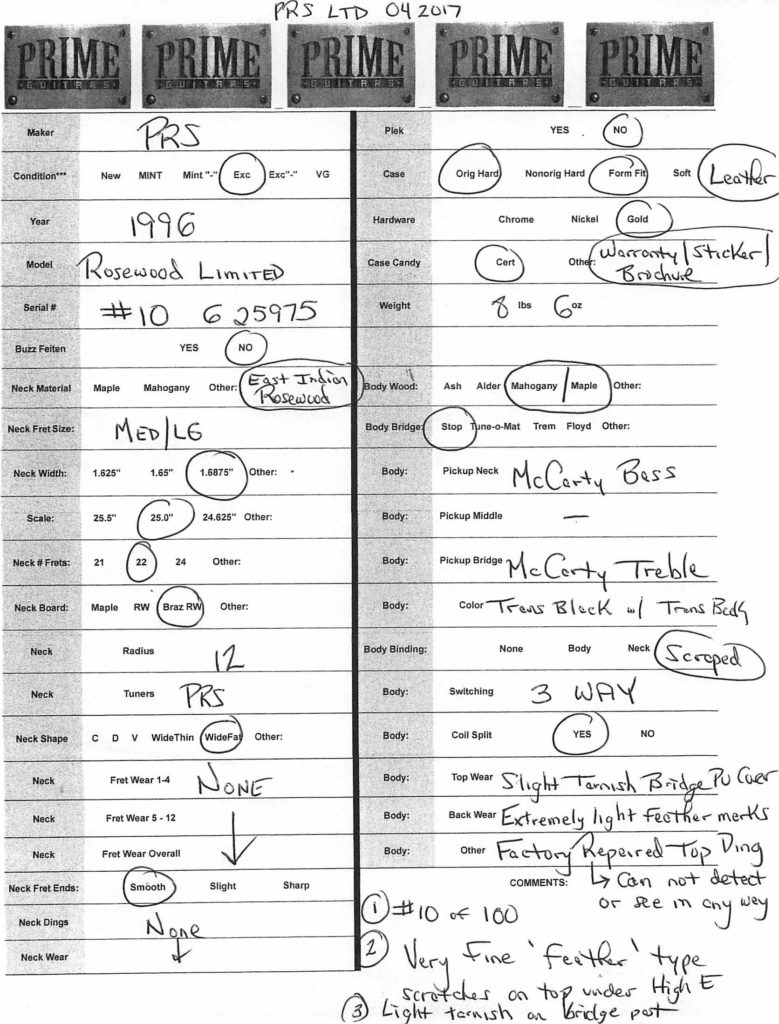 PRS LTD 04 2017
PRIME GUITARS PRIME GUITARS PRIME GUITARS PRIME GUITARS PRIME GUITARS
Maker PRS
Condition*** New MINT Mint "-" Exc Exc"-" VG
Year 1996
Model Rosewood Limited
Serial # #10 6 25975
Buzz Feiten YES NO
Neck Material Maple Mahogany Other: East Indian
Rosewood
Neck Fret Size: MED/LG
Neck Width: 1.625" 1.65" 1.6875" Other: -
Scale: 25.5" 25.0" 24.625" Other:
Neck # Frets: 21 22 24 Other:
Neck Board: Maple RW Braz RW Other:
Neck Radius 12
Neck Tuners PRS
Neck Shape C D V WideThin WideFat Other:
Neck Fret Wear 1-4 None
Neck Fret Wear 5 - 12
Neck Fret Wear Overall
Neck Fret Ends: Smooth Slight Sharp
Neck Dings None
Neck Wear
Plek YES NO
Case Orig Hard Nonorig Hard Form Fit Soft Leather
Hardware Chrome Nickel Gold
Case Candy Cert Other: Warranty/Sticker/
Brochure
Weight 8 lbs 6 oz
Body Wood: Ash Alder Mahogany / Maple Other:
Body Bridge: Stop Tune-o-Mat Trem Floyd Other:
Body: Pickup Neck McCarty Bass
Body: Pickup Middle —
Body: Pickup Bridge McCarty Treble
Body: Color Trans Black w/ Trans Back
Body Binding: None Body Neck Scraped
Body: Switching 3 WAY
Body: Coil Split YES NO
Body: Top Wear Slight Tarnish Bridge PU Cover
Body: Back Wear Extremely light feather marks
Body: Other Factory Repaired Top Ding
COMMENTS: ↳ Can not detect
or see in any way
① #10 of 100
② Very Fine 'Feather' type
scratches on top under High E
③ Light tarnish on bridge post